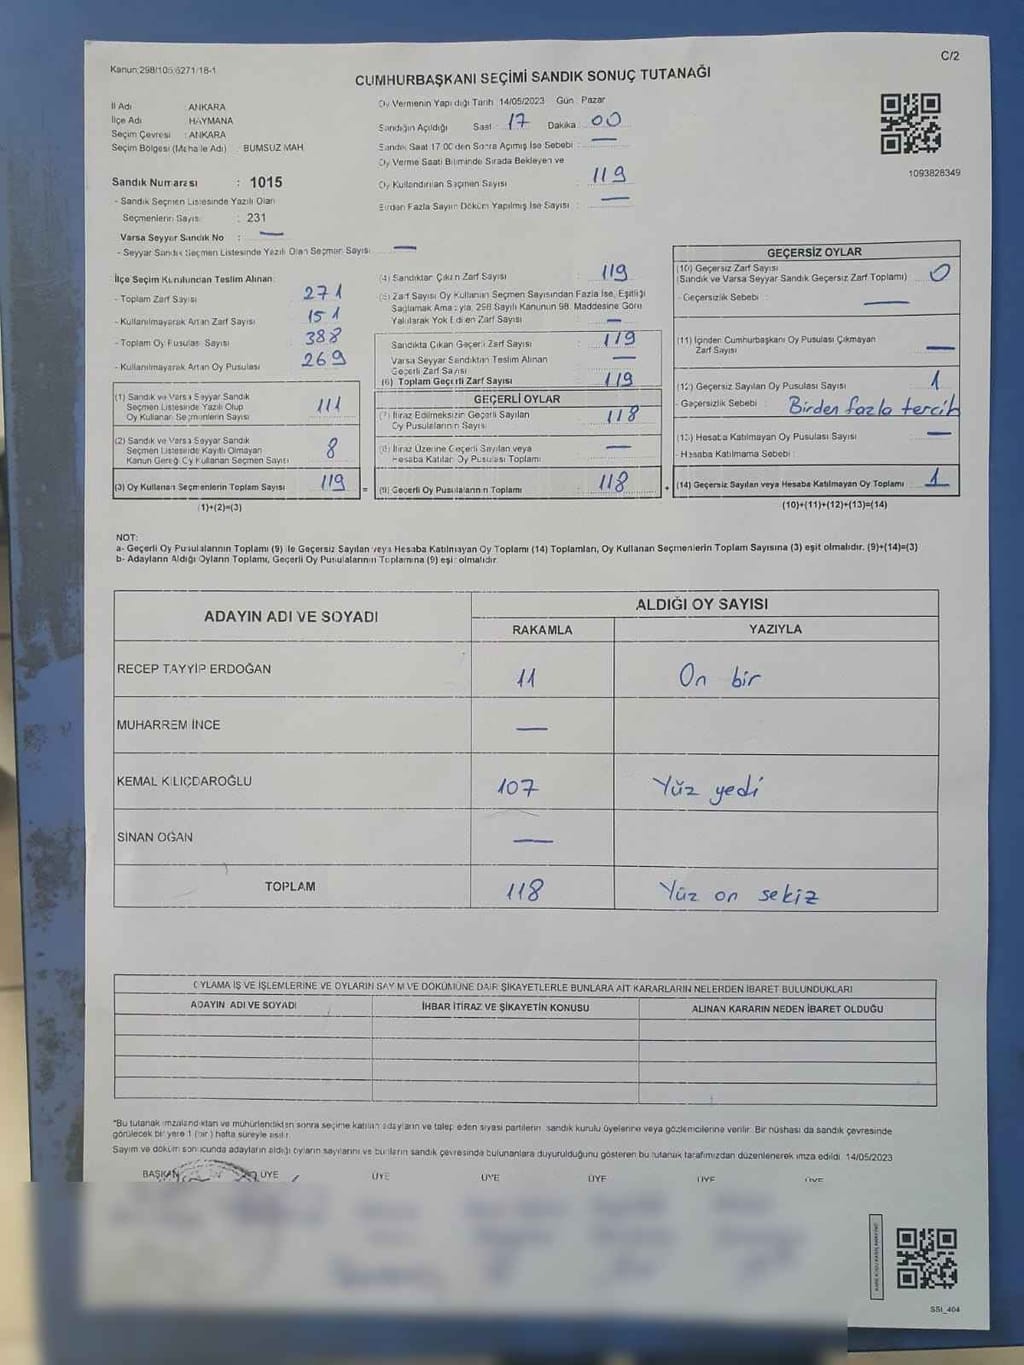 Kanun:298/105,6271/18-1
C/2
CUMHURBAŞKANI SEÇİMİ SANDIK SONUÇ TUTANAĞI
İl Adı : ANKARA
İlçe Adı : HAYMANA
Seçim Çevresi : ANKARA
Seçim Bölgesi (Mahalle Adı) : BUMSUZ MAH.
Oy Vermenin Yapıldığı Tarih 14/05/2023 Gün : Pazar
Sandığın Açıldığı Saat : 17 Dakika : 00
Sandık Saat 17.00'den Sonra Açılmış İse Sebebi : —
Oy Verme Saati Bitiminde Sırada Bekleyen ve
Oy Kullandırılan Seçmen Sayısı : 119
Birden Fazla Sayım Döküm Yapılmış İse Sayısı : —
1093828349
Sandık Numarası : 1015
- Sandık Seçmen Listesinde Yazılı Olan
Seçmenlerin Sayısı : 231
Varsa Seyyar Sandık No : —
- Seyyar Sandık Seçmen Listesinde Yazılı Olan Seçmen Sayısı : —
İlçe Seçim Kurulundan Teslim Alınan:
- Toplam Zarf Sayısı 271
- Kullanılmayarak Artan Zarf Sayısı 151
- Toplam Oy Pusulası Sayısı 388
- Kullanılmayarak Artan Oy Pusulası 269
(1) Sandık ve Varsa Seyyar Sandık
Seçmen Listesinde Yazılı Olup
Oy Kullanan Seçmenlerin Sayısı 111
(2) Sandık ve Varsa Seyyar Sandık
Seçmen Listesinde Kayıtlı Olmayan
Kanun Gereği Oy Kullanan Seçmen Sayısı 8
(3) Oy Kullanan Seçmenlerin Toplam Sayısı 119 =
(1)+(2)=(3)
(4) Sandıktan Çıkan Zarf Sayısı 119
(5) Zarf Sayısı Oy Kullanan Seçmen Sayısından Fazla İse, Eşitliği
Sağlamak Amacıyla, 298 Sayılı Kanunun 98. Maddesine Göre
Yakılarak Yok Edilen Zarf Sayısı —
Sandıkta Çıkan Geçerli Zarf Sayısı 119
Varsa Seyyar Sandıktan Teslim Alınan
Geçerli Zarf Sayısı —
(6) Toplam Geçerli Zarf Sayısı 119
GEÇERLİ OYLAR
(7) İtiraz Edilmeksizin Geçerli Sayılan
Oy Pusulalarının Sayısı 118
(8) İtiraz Üzerine Geçerli Sayılan veya
Hesaba Katılan Oy Pusulası Toplamı —
(9) Geçerli Oy Pusulalarının Toplamı 118 +
GEÇERSİZ OYLAR
(10) Geçersiz Zarf Sayısı
(Sandık ve Varsa Seyyar Sandık Geçersiz Zarf Toplamı) 0
- Geçersizlik Sebebi : —
(11) İçinden Cumhurbaşkanı Oy Pusulası Çıkmayan
Zarf Sayısı —
(12) Geçersiz Sayılan Oy Pusulası Sayısı 1
- Geçersizlik Sebebi : Birden fazla tercih
(13) Hesaba Katılmayan Oy Pusulası Sayısı —
- Hesaba Katılmama Sebebi :
(14) Geçersiz Sayılan veya Hesaba Katılmayan Oy Toplamı : 1
(10)+(11)+(12)+(13)=(14)
NOT:
a- Geçerli Oy Pusulalarının Toplamı (9) ile Geçersiz Sayılan veya Hesaba Katılmayan Oy Toplamı (14) Toplamları, Oy Kullanan Seçmenlerin Toplam Sayısına (3) eşit olmalıdır. (9)+(14)=(3)
b- Adayların Aldığı Oyların Toplamı, Geçerli Oy Pusulalarının Toplamına (9) eşit olmalıdır.
ADAYIN ADI VE SOYADI ALDIĞI OY SAYISI
RAKAMLA YAZIYLA
RECEP TAYYİP ERDOĞAN 11 On bir
MUHARREM İNCE —
KEMAL KILIÇDAROĞLU 107 Yüz yedi
SİNAN OĞAN —
TOPLAM 118 Yüz on sekiz
OYLAMA İŞ VE İŞLEMLERİNE VE OYLARIN SAYIM VE DÖKÜMÜNE DAİR ŞİKAYETLERLE BUNLARA AİT KARARLARIN NELERDEN İBARET BULUNDUKLARI
ADAYIN ADI VE SOYADI İHBAR İTİRAZ VE ŞİKAYETİN KONUSU ALINAN KARARIN NEDEN İBARET OLDUĞU
*Bu tutanak imzalandıktan ve mühürlendikten sonra seçime katılan adayların ve talep eden siyasi partilerin sandık kurulu üyelerine veya gözlemcilerine verilir. Bir nüshası da sandık çevresinde
görülecek bir yere 1 (bir) hafta süreyle asılır.
Sayım ve döküm sonucunda adayların aldığı oyların sayılarını ve bunların sandık çevresinde bulunanlara duyurulduğunu gösteren bu tutanak tarafımızdan düzenlenerek imza edildi. 14/05/2023
BAŞKAN ÜYE ÜYE ÜYE ÜYE ÜYE ÜYE
SSI_404